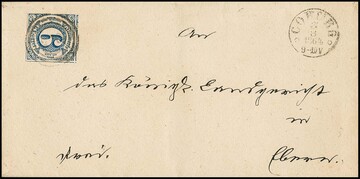 COBURG
An
das Königl. Landgericht
in
frei. Ebern.